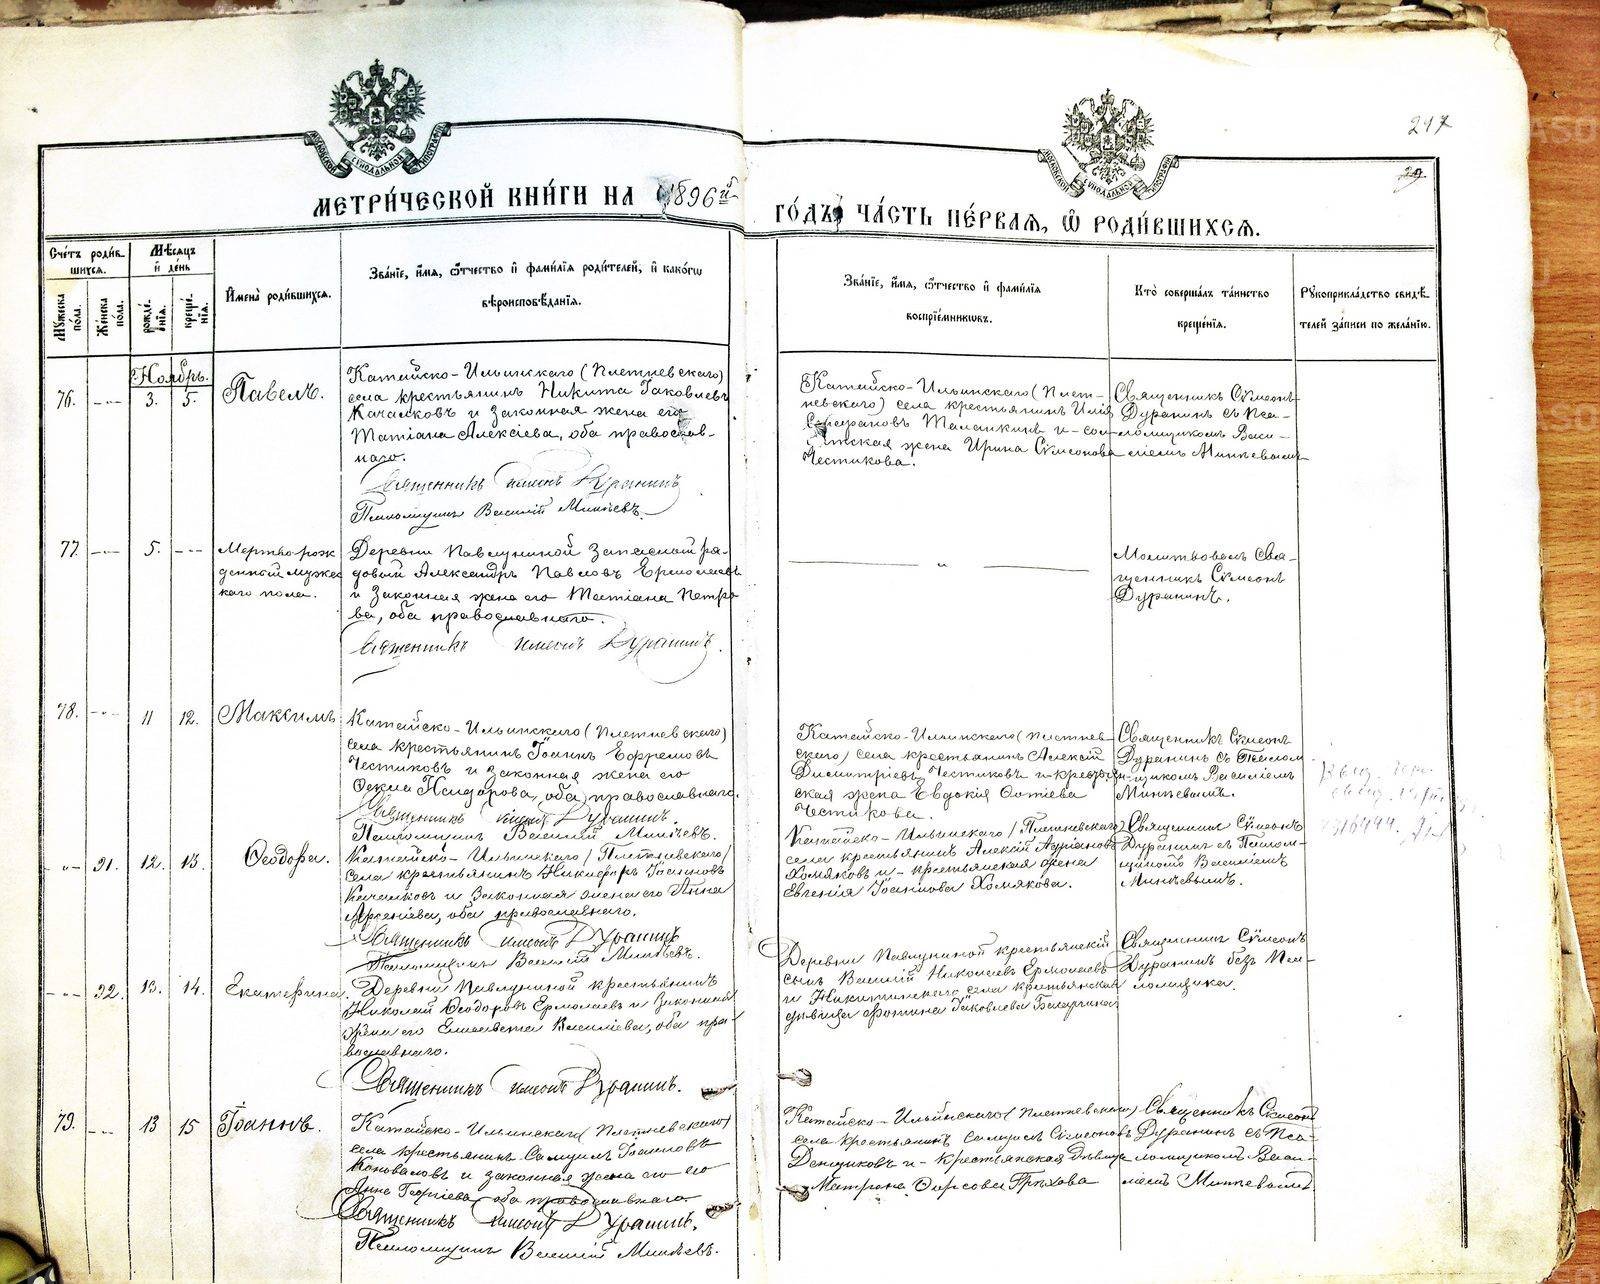 247
29
МОСКОВСКОЙ СѴНОДАЛЬНОЙ ТИПОГРАФІИ
МОСКОВСКОЙ СѴНОДАЛЬНОЙ ТИПОГРАФІИ
МЕТРИ́ЧЕСКОЙ КНИ́ГИ НА 1896й
ГО́ДЪ ЧА́СТЬ ПЕ́РВАЯ, Ѽ РОДИ́ВШИХСЯ.
Сче́тъ роди́в-
шихся.
Мѣ́сяцъ
и҆ де́нь
Му́жеска по́ла.
Же́нска по́ла.
рожде́-нія.
креще́-нія.
И҆мена̀ роди́вшихся.
Зва́ніе, и҆́мя, ѻ҆́тчество и҆ фами́лія роди́телей, и҆ како́гѡ
вѣроисповѣ́данія.
Зва́ніе, и҆́мя, ѻ҆́тчество и҆ фами́лія
воспріе́мникѡвъ.
Кто̀ соверша́лъ та́инство
креще́нія.
Рꙋкоприкла́дство свидѣ́-
телей за́писи по жела́нію.
Ноябрь.
76. 3. 5. Павелъ.
Катайско-Ильинскаго (Плетневскаго)
села крестьянинъ Никита Іаковлевъ
Качалковъ и законная жена его
Татіана Алексіева, оба православ-
наго.
Священникъ Сѵмеонъ Дуранинъ
Псаломщикъ Василій Минѣевъ.
Катайско-Ильинскаго (Плет-
невскаго) села крестьянинъ Илія
Талашкинъ и сол-
датская жена Ирина Сѵмеонова
Честикова.
Священникъ Сѵмеонъ
Дуранинъ съ Пса-
ломщикомъ Васи-
ліемъ Минѣевымъ
77. 5. Мертворож
денный мужес
каго пола.
Деревни Павлуниной запасный ря-
довый Александръ Павловъ Ермолаевъ
и законная жена его Татіана Петро
ва, оба православнаго.
Священникъ Сѵмеонъ Дуранинъ.
Молитвовалъ Свя-
щенникъ Сѵмеонъ
Дуранинъ.
78. 11 12. Максимъ
Катайско-Ильинскаго (Плетневскаго)
села крестьянинъ Іоаннъ Ефремовъ
Честиковъ и законная жена его
Ѳекла Исидорова, оба православнаго.
Священникъ Сѵмеонъ Дуранинъ.
Псаломщикъ Василій Минѣевъ.
Катайско-Ильинскаго (Плетнев-
скаго) села крестьянинъ Алексій
Димитріевъ Честиковъ и крестьян-
ская жена Евдокія Фотіева
Честикова.
Священникъ Сѵмеонъ
Дуранинъ съ Псалом
щикомъ Василіемъ
Минѣевымъ.
31. 12. 13. Ѳеодора.
Катайско-Ильинскаго (Плетневскаго)
села крестьянинъ Никифоръ Іоанновъ
Качалковъ и законная жена его Анна
Арсеніева, оба православнаго.
Священникъ Сѵмеонъ Дуранинъ
Псаломщикъ Василій Минѣевъ.
Катайско-Ильинскаго (Плетневскаго)
села крестьянинъ Алексій Адріановъ
Хомяковъ и крестьянская жена
Евгенія Іоаннова Хомякова.
Священникъ Сѵмеонъ
Дуранинъ съ Псалом-
щикомъ Василіемъ
Минѣевымъ.
32. 13. 14. Екатерина.
Деревни Павлуниной крестьянинъ
Николай Ѳеодоровъ Ермолаевъ и законная
жена его Елисавета Василіева, оба пра-
вославнаго.
Священникъ Сѵмеонъ Дуранинъ.
Деревни Павлуниной крестьянскій
сынъ Василій Николаевъ Ермолаевъ
и Никитинскаго села крестьянская
дѣвица Фотина Іаковлева
Священникъ Сѵмеонъ
Дуранинъ безъ Пса-
ломщика.
79. 13 15 Іоаннъ.
Катайско-Ильинскаго (Плетневскаго)
села крестьянинъ Самуилъ Іоанновъ
Коноваловъ и законная жена его
Анна Георгіева оба православнаго
Священникъ Сѵмеонъ Дуранинъ.
Псаломщикъ Василій Минѣевъ.
Катайско-Ильинскаго (Плетневскаго)
села крестьянинъ Самуилъ Сѵмеоновъ
Денщиковъ и крестьянская дѣвица
Матрона Фирсова Грѣхова
Священникъ Сѵмеонъ
Дуранинъ съ Пса-
ломщикомъ Васи-
ліемъ Минѣевымъ